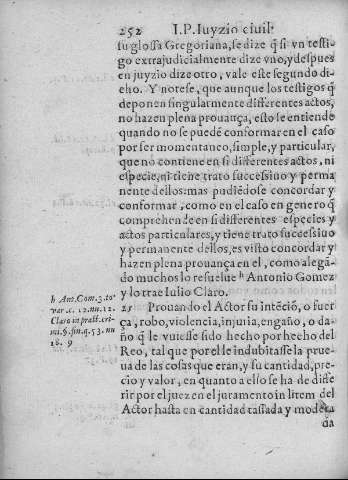 252 I.P. Iuyzio ciuil.
su glossa Gregoriana, se dize q̃ si vn testi-
go extrajudicialmente dize vno, y despues
en juyzio dize otro, vale este segundo di-
cho. Y notese, que aunque los testigos q̃
deponen singularmente differentes actos,
no hazen plena prouança, esto se entiende
quando no se puedẽ conformar en el caso
por ser momentaneo, simple, y particular,
que no contiene en si differentes actos, ni
especie, ni tiene trato successiuo y perma
nente dellos: mas pudiẽdose concordar y
conformar, como en el caso en genero q̃
comprehende en si differentes especies y
actos particulares, y tiene trato successiuo
y permanente dellos, es visto concordar y
hazen plena prouança en el, como alega-
do muchos lo resuelue h Antonio Gomez
y lo trae Iulio Claro.
h Ant. Com. 3. to-
var. c. 12. nu. 12.
Claro in pract. cri-
mi. §. fin. q. 53. nu
18. 9
25 Prouando el Actor su intẽciõ, o fuer
ça, robo, violencia, injuria, engaño, o da-
ño q̃ le vuiesse sido hecho por hecho del
Reo, tal que por el le indubitasse la prue-
ua de las cosas que eran, y su cantidad, pre-
cio y valor, en quanto a esso se ha de diffe
rir por el juez en el juramento in litem del
Actor hasta en cantidad tassada y modera
da